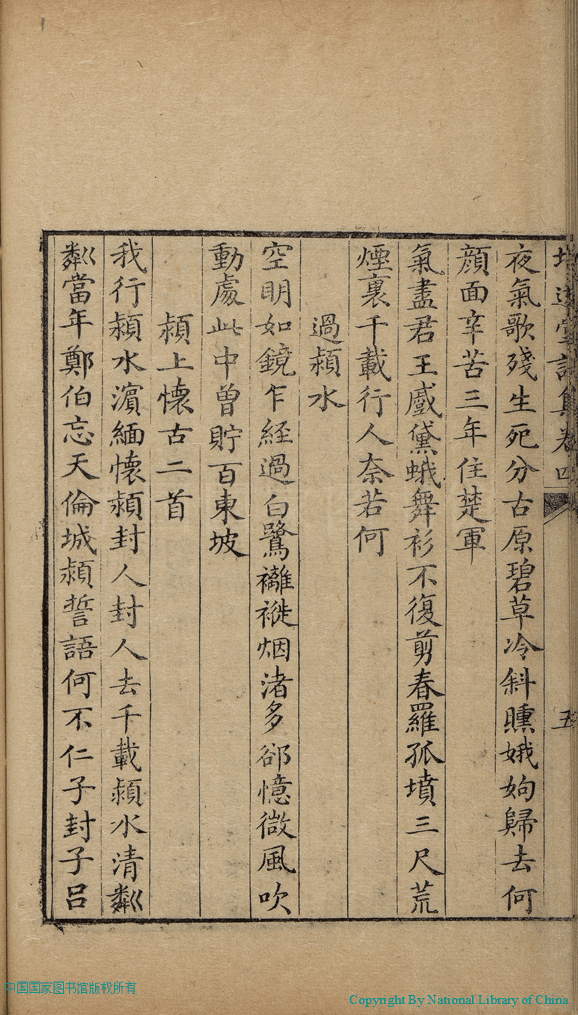 培遠堂詩集卷四
五
夜氣歌殘生死分古原碧草冷斜曛娥姁歸去何
顔面辛苦三年住楚軍
氣盡君王蹙黛蛾舞衫不復剪春羅孤墳三尺荒
煙裏千載行人奈若何
過潁水
空明如鏡乍經過白鷺䙰褷烟渚多郤憶微風吹
動處此中曾貯百東坡
潁上懷古二首
我行潁水濵緬懷潁封人封人去千載潁水清粼
粼當年鄭伯忘天倫城潁誓語何不仁子封子呂
中国国家图书馆版权所有
Copyright By National Library of China